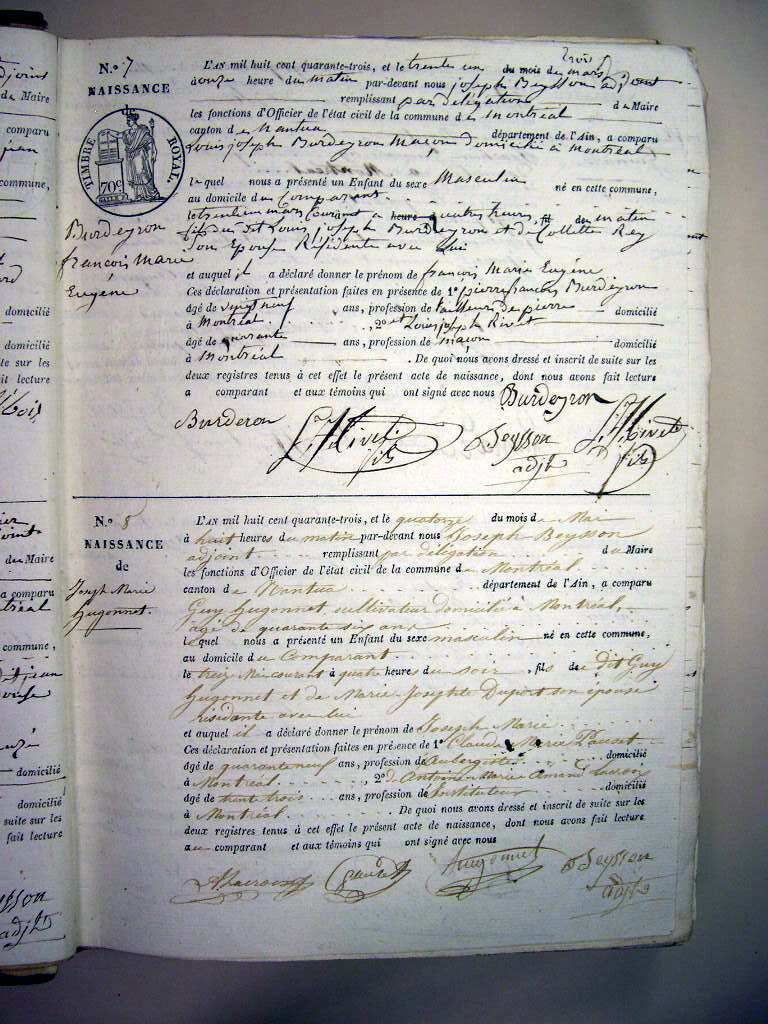 N.º 7
NAISSANCE
TIMBRE ROYAL.
70c
Burdeyron
françois Marie
Eugéne
L'AN mil huit cent quarante-trois, et le trente un du mois de mars
à onze heure du matin par-devant nous joseph Beysson adjoint
remplissant par délégation de Maire
les fonctions d'Officier de l'état civil de la commune de Montréal
canton de Nantua département de l'Ain, a comparu
Louis joseph Burdeyron Maçon domicilié à Montréal
lequel nous a présenté un Enfant du sexe Masculin né en cette commune,
au domicile du Comparant
le trente un mars Courant a heure quatre heures, fil du matin
fils du dit Louis joseph Burdeyron et de Collette Rey
son Epouse Résidente avec lui
et auquel il a déclaré donner le prénom de françois Marie Eugéne
Ces déclaration et présentation faites en présence de 1º pierre françois Burdeyron
âgé de vingt neuf ans, profession de tailleur de pierre domicilié
à Montréal , 2º et Louis joseph Rivet
âgé de quarante ans, profession de maçon domicilié
à Montréal . De quoi nous avons dressé et inscrit de suite sur les
deux registres tenus à cet effet le présent acte de naissance, dont nous avons fait lecture
a comparant et aux témoins qui ont signé avec nous
Burderon Rivet fils Beysson adjt Burdeyron Rivet fils
N.º 8
NAISSANCE
de
Joseph Marie
Hugonnet.
L'AN mil huit cent quarante-trois, et le quatorze du mois de Mai
à huit heures du matin par-devant nous Joseph Beysson
adjoint remplissant par délégation du Maire
les fonctions d'Officier de l'état civil de la commune de Montréal
canton de Nantua département de l'Ain, a comparu
Guy Hugonnet cultivateur domicilié à Montréal,
agé de quarante six ans
lequel nous a présenté un Enfant du sexe masculin né en cette commune,
au domicile du Comparant
le treize Mai courant à quatre heures du soir, fils de dit Guy
Hugonnet et de Marie-Josephte Dupont son épouse
résidante avec lui
et auquel il a déclaré donner le prénom de Joseph Marie
Ces déclaration et présentation faites en présence de 1º Claude Marie
âgé de quarante neuf ans, profession de Aubergiste domicilié
à Montréal , 2º d'Antoine Marie Amand
âgé de trente trois ans, profession de Instituteur domicilié
à Montréal . De quoi nous avons dressé et inscrit de suite sur les
deux registres tenus à cet effet le présent acte de naissance, dont nous avons fait lecture
au comparant et aux témoins qui ont signé avec nous
Hugonnet Beysson
adjt